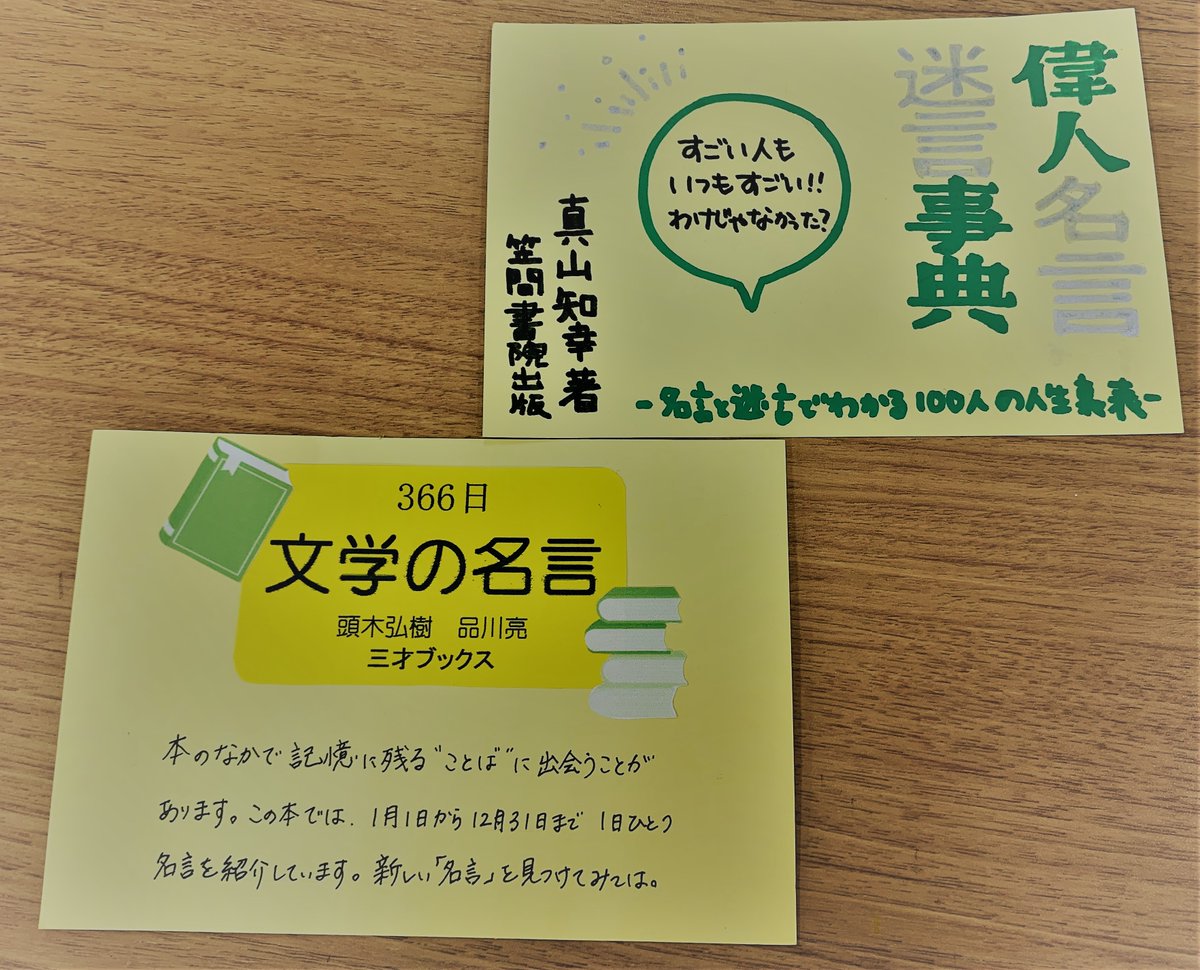 偉人名言
迷言事典
すごい人も
いつもすごい!!
わけじゃなかった?
真山知幸著
笠間書院出版
-名言と迷言でわかる100人の人生裏表-
366日
文学の名言
頭木弘樹 品川亮
三才ブックス
本のなかで記憶に残る"ことば"に出会うことが
あります。この本では、1月1日から12月31日まで 1日ひとつ
名言を紹介しています。新しい「名言」を見つけてみては。